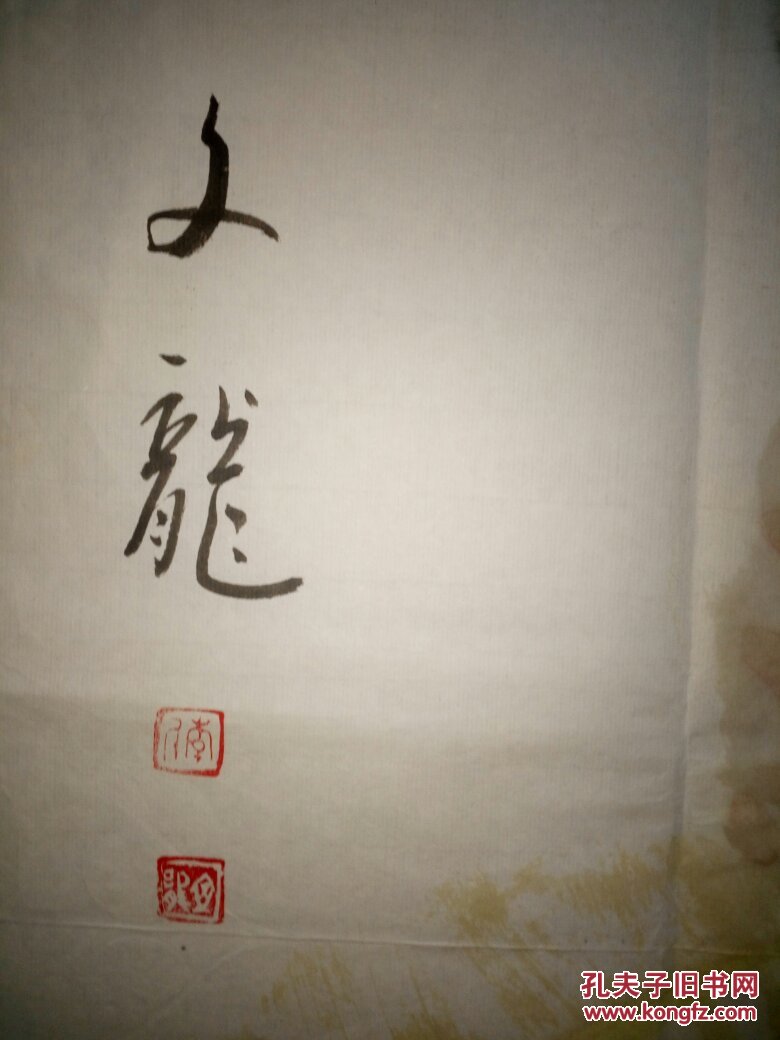 文
龍
孔夫子旧书网
www.kongfz.com